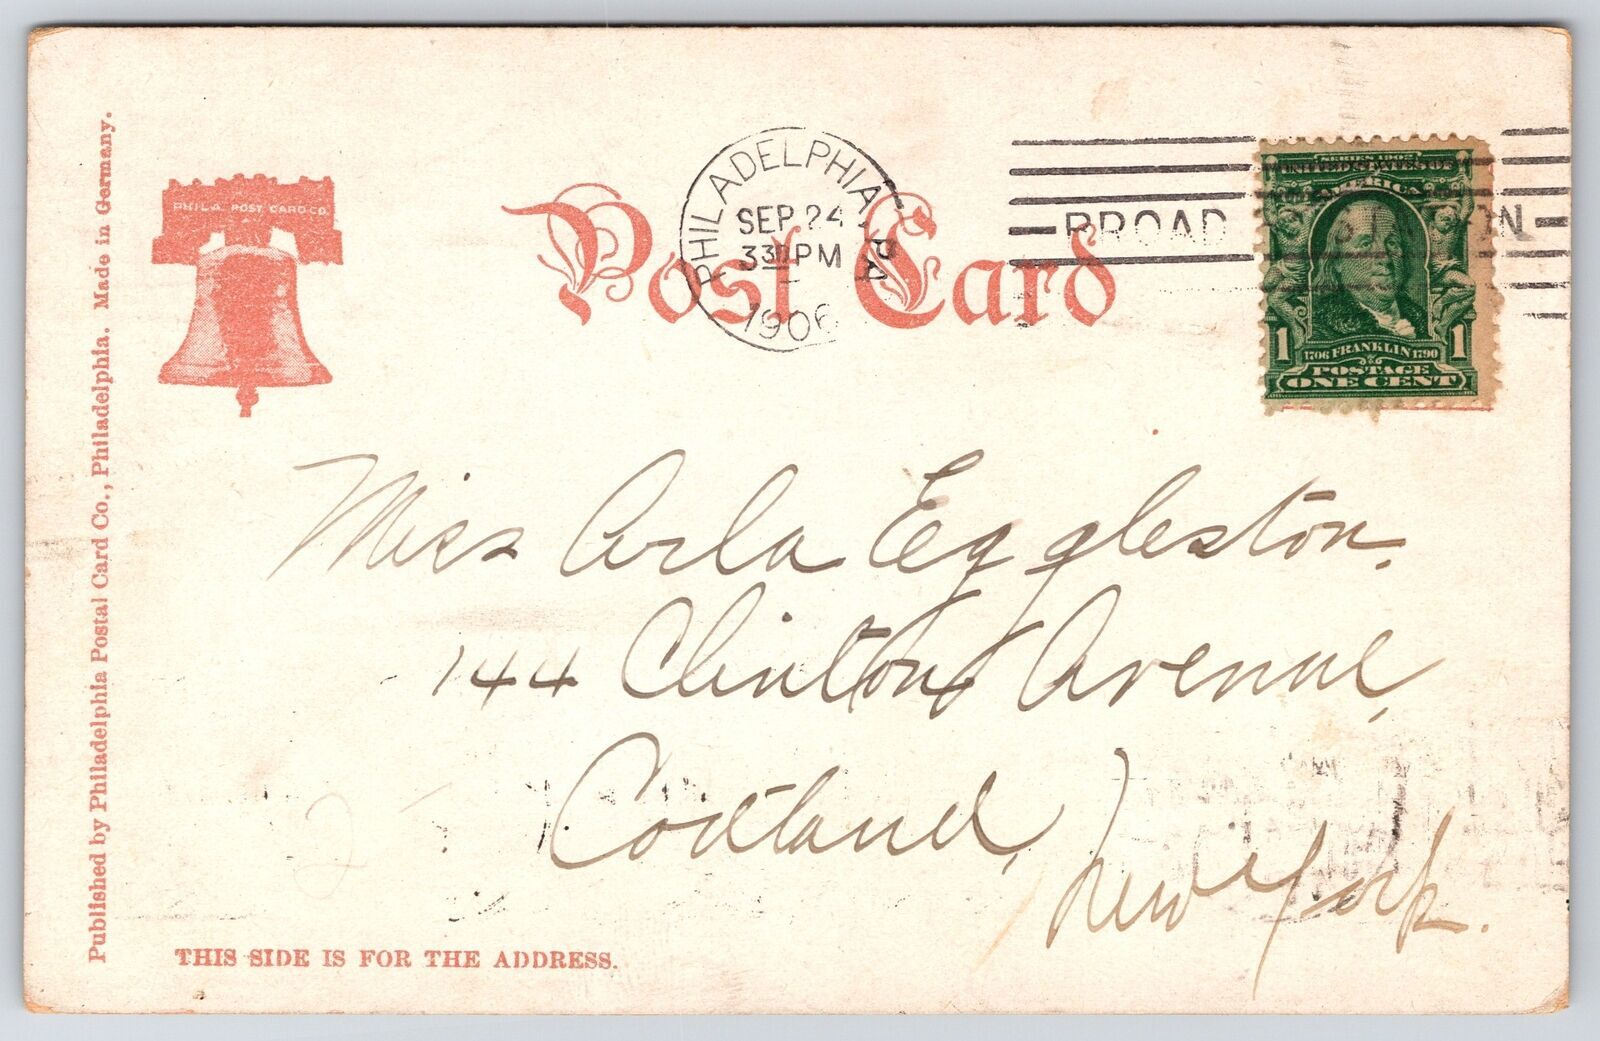 Published by Philadelphia Postal Card Co., Philadelphia. Made in Germany.
PHILA. POST CARD CO.
Post Card
PHILADELPHIA, PA.
SEP 24
330 PM
1906
BROAD ST. STATION
SERIES 1902
UNITED STATES OF
AMERICA
1706 FRANKLIN 1790
1 POSTAGE 1
ONE CENT
Miss Arla Eggleston.
144 Clinton Avenue,
Cortland,
New York.
THIS SIDE IS FOR THE ADDRESS.